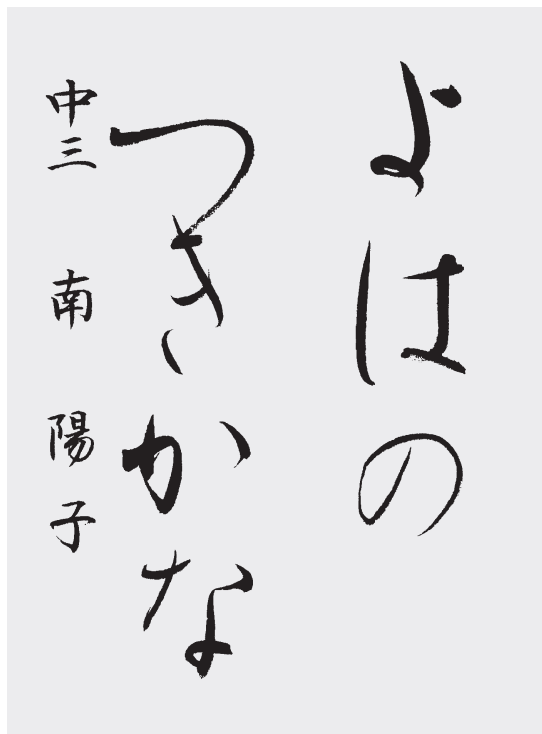 よはの
つきかな
中三 南 陽子